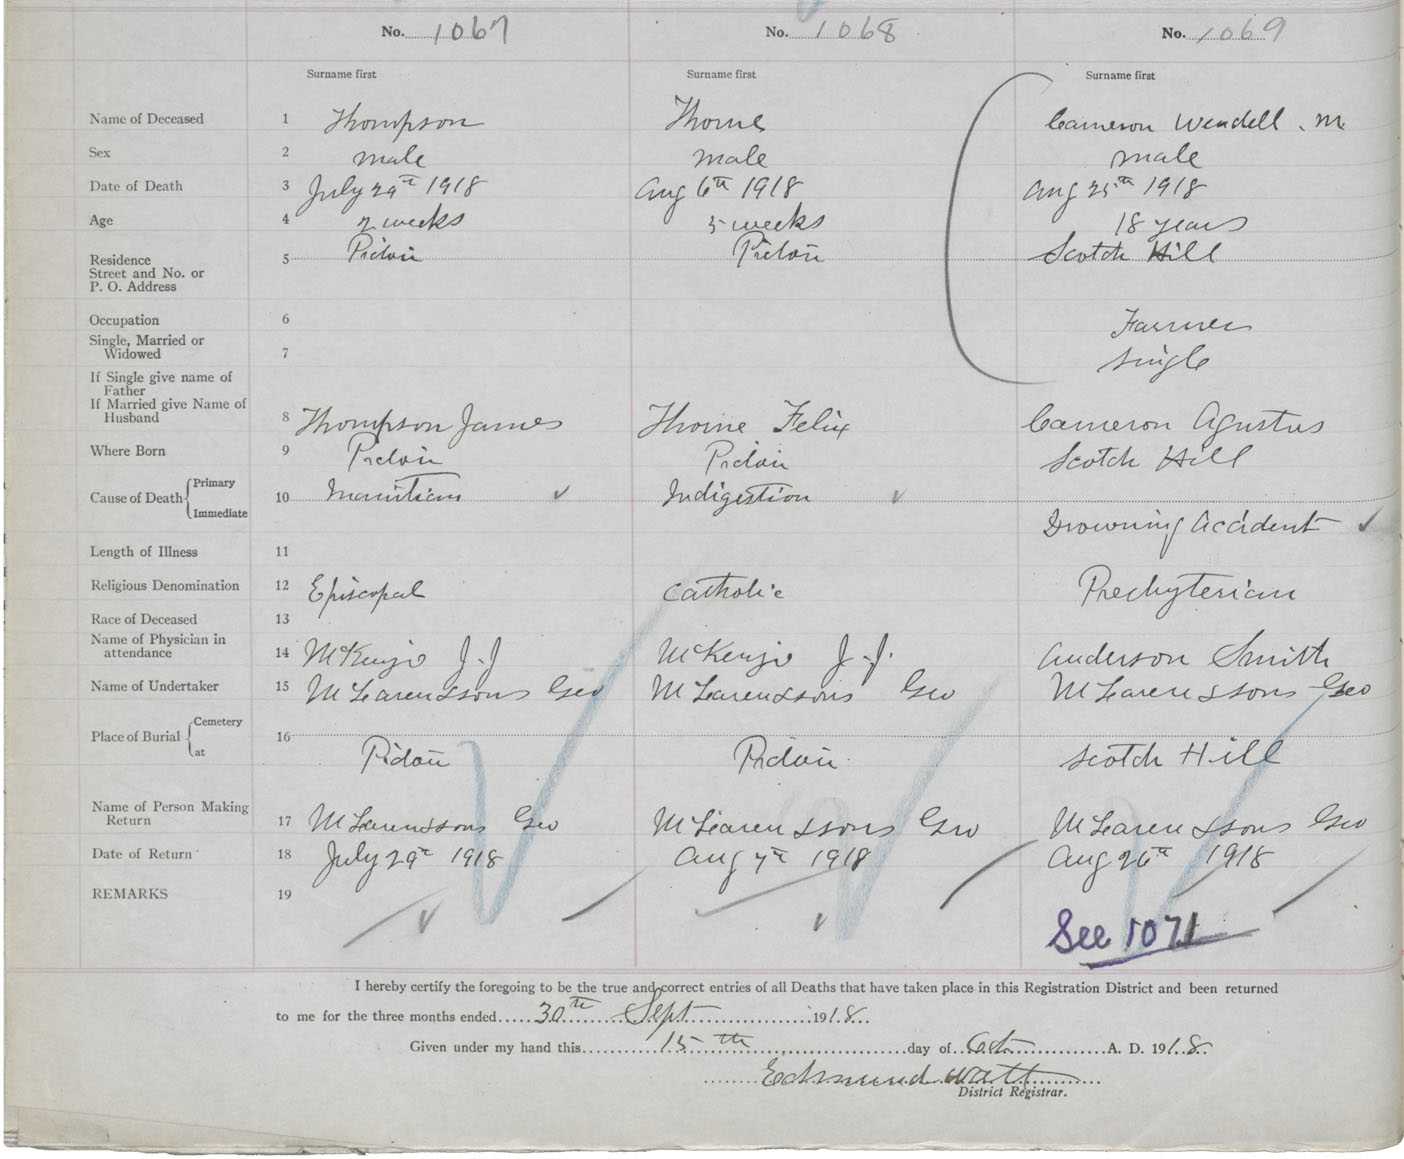 No. 1067 No. 1068 No. 1069
Surname first Surname first Surname first
Name of Deceased 1 Thompson Thorne Cameron Wendell . M
Sex 2 male male male
Date of Death 3 July 29th 1918 Aug 6th 1918 Aug 25th 1918
Age 4 2 weeks 5 weeks 18 years
Residence 5 Pictou Pictou Scotch Hill
Street and No. or
P. O. Address
Occupation 6 Farmer
Single, Married or
Widowed 7 Single
If Single give name of
Father
If Married give Name of
Husband 8 Thompson James Thorne Felix Cameron Agustus
Where Born 9 Pictou Pictou Scotch Hill
Cause of Death { Primary
10 Inanition Indigestion
Immediate Drowning Accident
Length of Illness 11
Religious Denomination 12 Episcopal Catholic Presbyterian
Race of Deceased 13
Name of Physician in
attendance 14 McKenzie J.J McKenzie J.J. Anderson Smith
Name of Undertaker 15 McLaren & sons Geo McLaren & sons Geo McLaren & sons Geo
Place of Burial { Cemetery
16
at Pictou Pictou Scotch Hill
Name of Person Making
Return 17 McLaren & sons Geo McLaren & sons Geo McLaren & sons Geo
Date of Return 18 July 29th 1918 Aug 7th 1918 Aug 26th 1918
REMARKS 19
See 1071
I hereby certify the foregoing to be the true and correct entries of all Deaths that have taken place in this Registration District and been returned
to me for the three months ended 30th Sept 1918
Given under my hand this 15th day of Oct A. D. 1918
Edmund Watt
District Registrar.